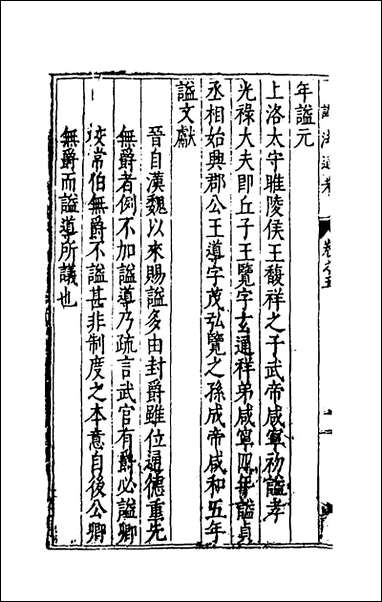 諡法通考 卷之五
年諡元
上洛太守睢陵侯王馥祥之子武帝咸寧初諡孝
光祿大夫即丘子王覽字玄通祥弟咸寧四年諡貞
丞相始興郡公王導字茂弘覽之孫成帝咸和五年
諡文獻
晉自漢魏以來賜諡多由封爵雖位通德重先
無爵者例不加諡導乃疏言武官有爵必諡卿
校常伯無爵不諡甚非制度之本意自後公卿
無爵而諡導所議也